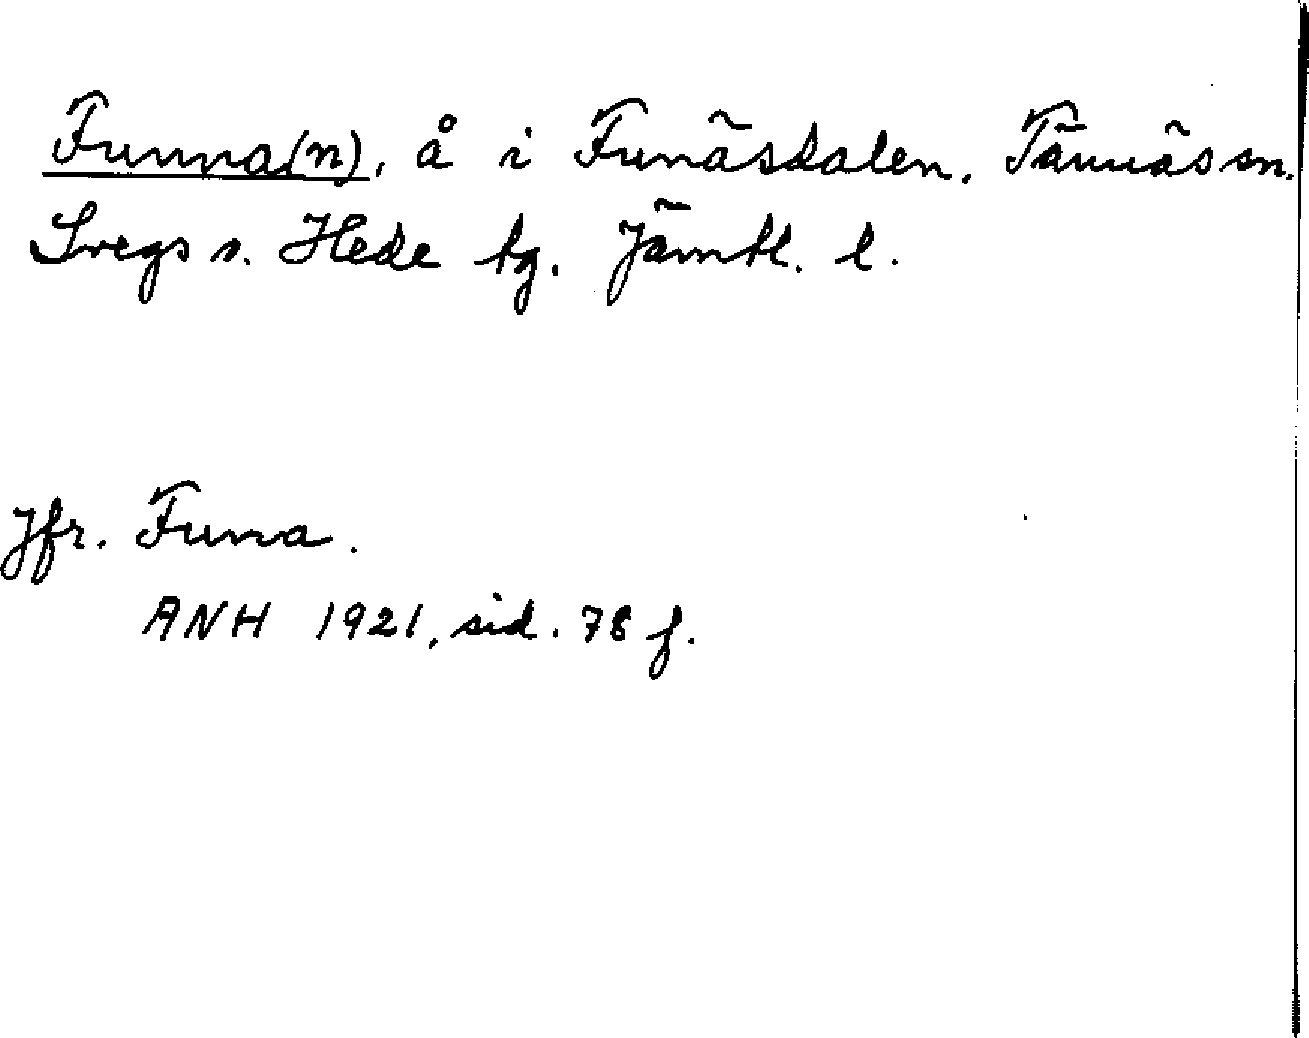 Funna(n), å i Funäsdalen. Tännäs sn.
Svegs o. Hede tg. Jämtl. l.
Jfr. Funa.
ANH 1921, sid. 78 f.